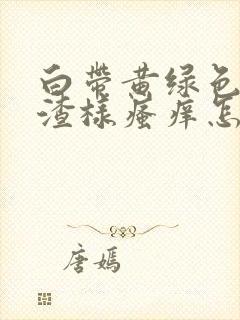 白带黄绿色
渣样瘙痒怎
唐嫣